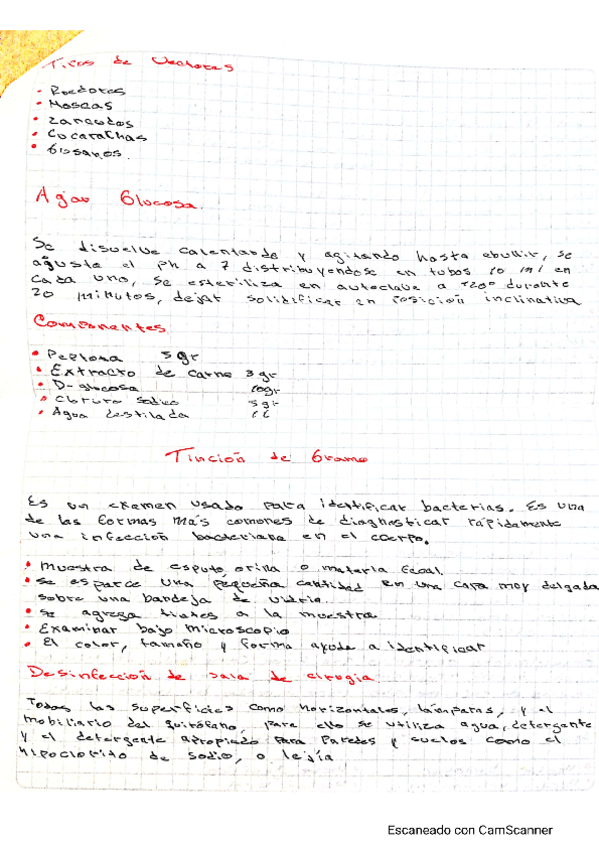 Tipos de Vectores
• Roedores
• Moscas
• Zancudos
• Cucarachas
• Gusanos.
Agar Glucosa.
Se disuelve calentando y agitando hasta ebullir, se
ajuste el Ph a 7 distribuyendose en tubos 10 ml en
cada uno, se esteriliza en autoclave a 120° durante
20 minutos, dejar solidificar en posición inclinativa
Componentes
• Peptona 5 gr
• Extracto de carne 3 gr
• D-glucosa 10gr
• Cloruro Sodico 5 gr
• Agua destilada
Tinción de Gramo
Es un examen usado para identificar bacterias. Es una
de las formas más comones de diagnosticar rápidamente
una infección bacteriana en el cuerpo.
• Muestra de esputo, orina o materia fecal.
• Se esparce una pequeña cantidad en una capa muy delgada
sobre una bandeja de vidrio.
• Se agrega tintes a la muestra
• Examinar bajo microscopio
• El color, tamaño y forma ayuda a identificar
Desinfección de sala de cirugia.
Todas las superficies como horizontales, lámparas, y el
mobiliario del quirófano, para ello se utiliza agua, detergente
y el detergente apropiado para paredes y suelos como el
hipoclorito de sodio, o lejía
Escaneado con CamScanner